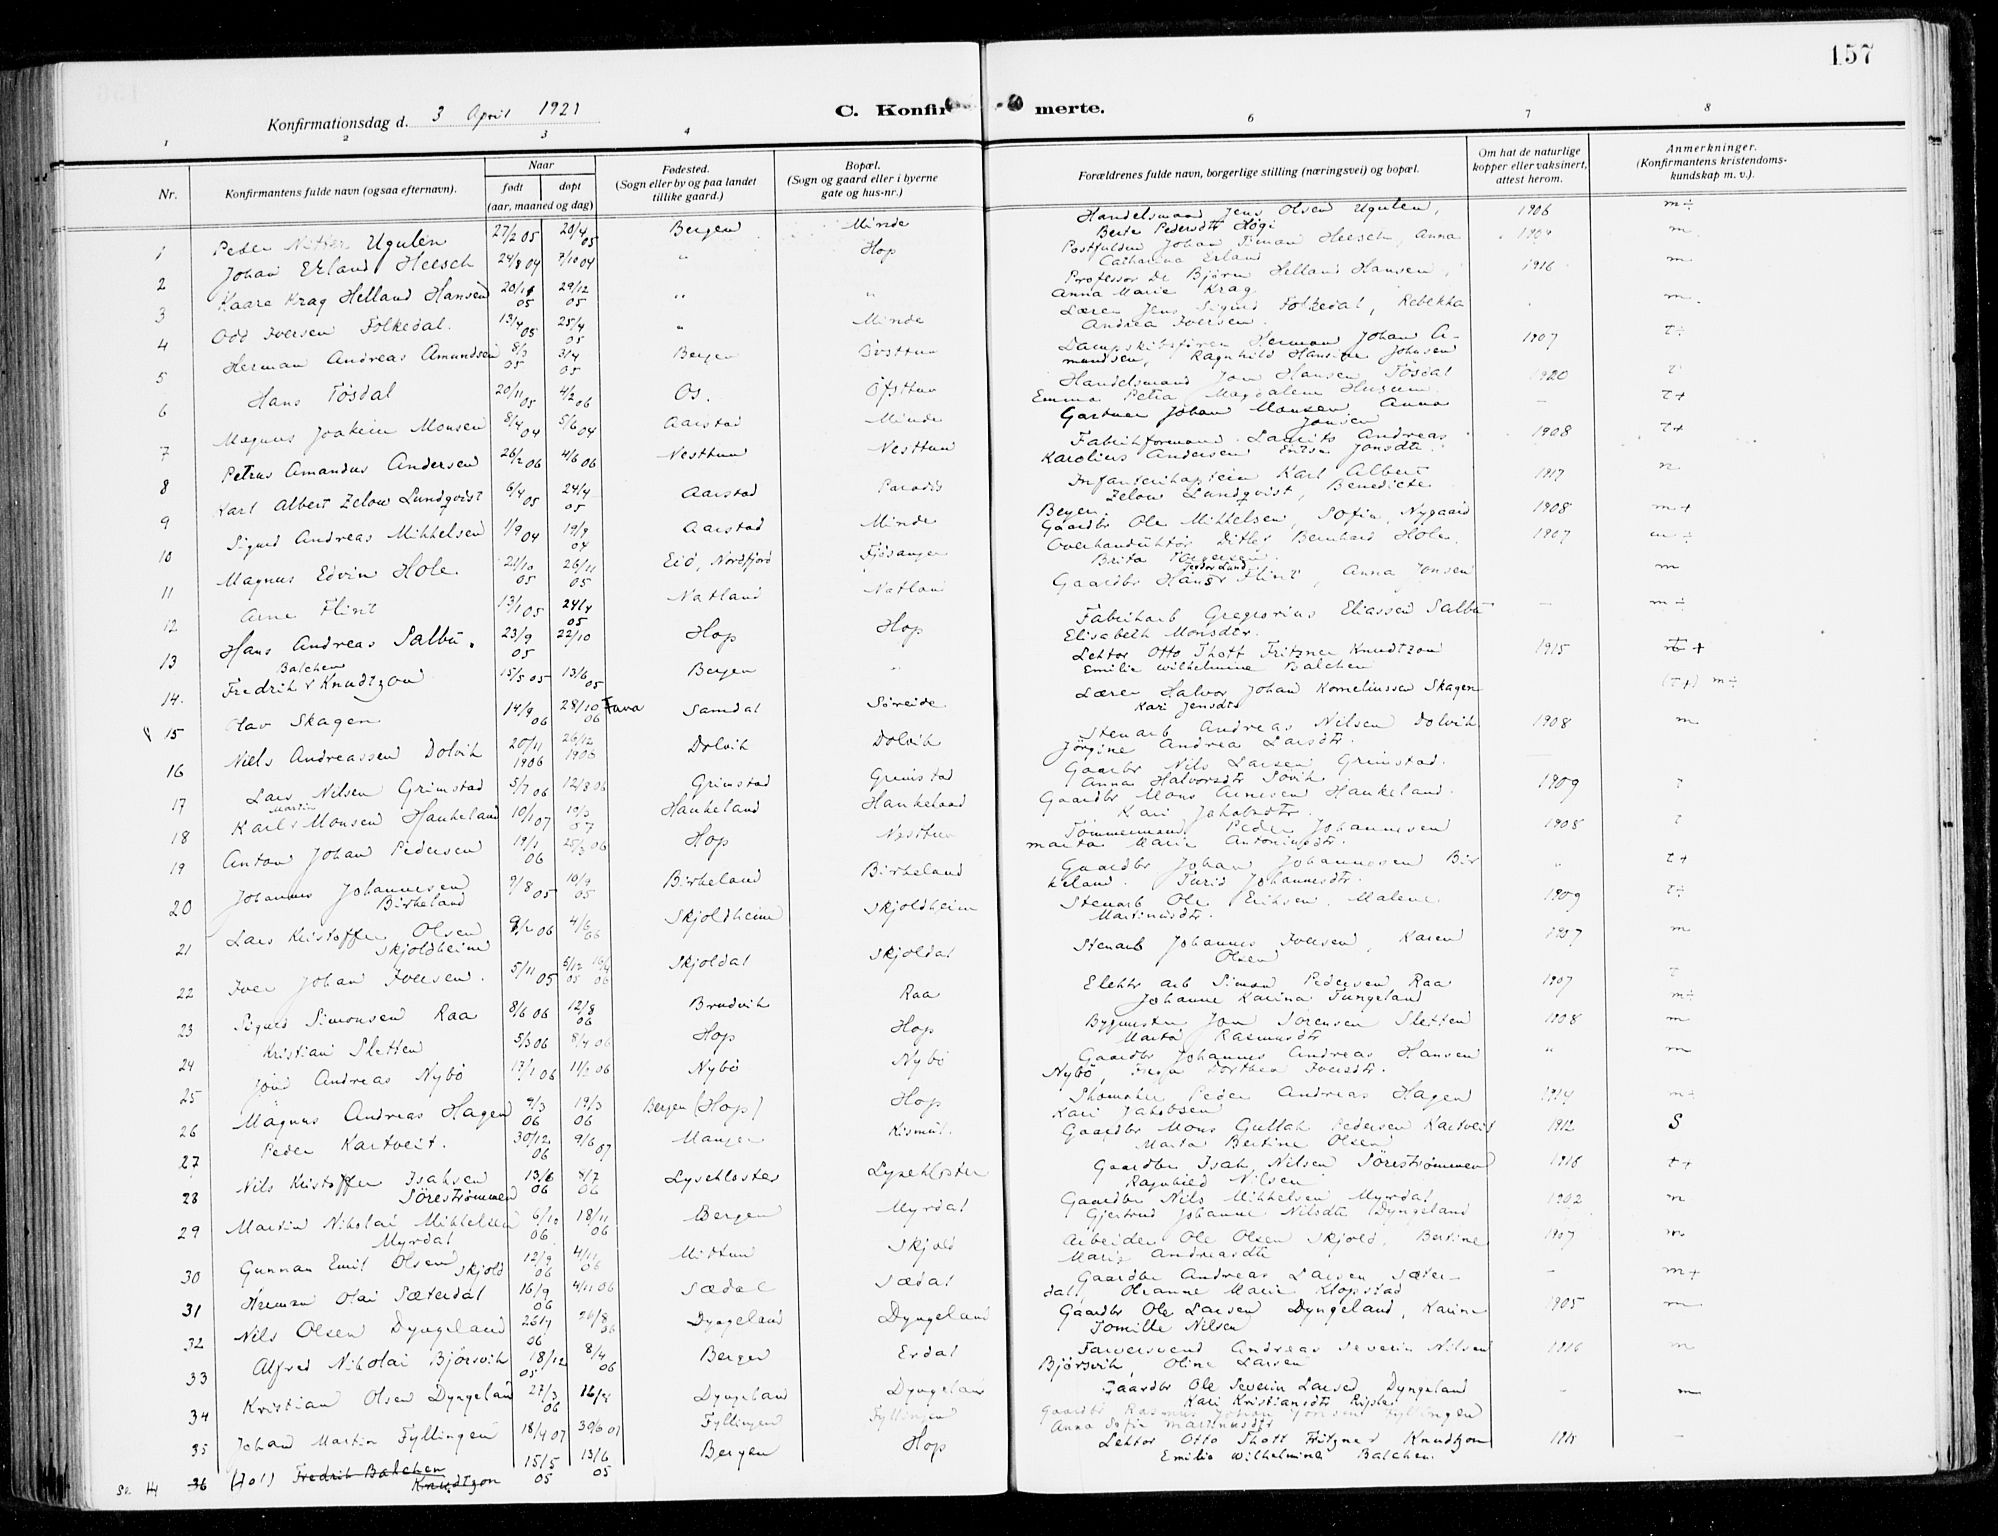 157
Konfirmationsdag d. 3 April 1921
C. Konfir merte.
1 2 3 4 6 7 8
Nr.
Konfirmantens fulde navn (ogsaa efternavn).
Naar
født
døpt
(aar, maaned og dag)
Fødested.
(Sogn eller by og paa landet
tillike gaard.)
Bopæl.
(Sogn og gaard eller i byerne
gate og hus-nr.)
Forældrenes fulde navn, borgerlige stilling (næringsvei) og bopæl.
Om hat de naturlige
kopper eller vaksinert,
attest herom.
Anmerkninger.
(Konfirmantens kristendoms-
kundskap m. v.).
1 Peder Ugulen 27/2 05 20/4 05 Bergen Minde Handelsmand Jens Olsen Ugulen, 1906 m÷
Berte Pedersdtr
2 Johan Erland Heesch 24/8 04 9/10 04 " Hop Johan Heesch, Anna m
Catharina Erland
3 Kaare Krag Helland Hansen 20/11 05 29/12 05 " " Professor Dr Bjørn Helland Hansen, 1916 m
Anna Marie Krag
4 Odd Iversen Folkedal. 13/4 05 25/4 05 " Minde Lærer Jens Sigurd Folkedal, Rebekka m.
Andrea Iversen.
5 Herman Andreas Amundsen 8/3 05 3/4 05 Bergen Øvsttun Dampskibsfører Herman Johan A- 1907 t÷
mundsen, Ragnhild Hansine Johnsen
6 Hans Tøsdal 20/11 05 4/2 06 Os. Øfsttun Handelsmand Jon Hansen Tøsdal 1920
Emma Petra Magdalene
7 Magnus Joakim Monsen 8/4 04 5/6 04 Aarstad Minde Gartner Johan Monsen Anna — t+
Jonsen
8 Petrus Amandus Andersen 26/2 06 4/6 06 Nesttun Nesttun Fabrikformand Laurits Andreas 1908 t+
Karolius Andersen Jonsdtr.
9 Karl Albert Zelow Lundqvist 6/4 05 24/4 05 Aarstad Paradis Infanterikaptein Karl Albert 1917 n
Zelow Lundqvist, Benedicte
Beyer.
10 Sigurd Andreas Mikkelsen 1/9 04 19/9 04 Aarstad Minde Gaardbr Ole Mikkelsen, Sofia Nygaard 1908 m+
11 Magnus Edvin Hole. 21/10 05 26/11 05 Eid, Nordfjord Fjøsanger Ditlef Bernhard Hole, 1907 m÷
Brita Torgersen.
12 Arne Flint 13/1 05 24/4 05 Natland Natland Gaardbr Hans Flint, Anna Jonsen m
13 Hans Andreas Salbu. 23/9 05 22/10 Hop Hop Fabrikarb Gregorius Eliassen Salbu — m÷
Elisabeth Monsdtr.
14. Fredrik Balchen Knudtzon 15/5 05 13/6 05 Bergen " Lektor Otto Thott Fritzner Knudtzon 1915
Emilie Wilhelmine Balchen
15 Olav Skagen. 14/9 06 28/10 06 Fana Samdal Søreide Lærer Halvor Johan Korneliussen Skagen (t+) m÷
Kari Jensdtr
16 Niels Andreassen Dolvik 20/11 1906 26/12 1906 Dolvik Dolvik Stenarb Andreas Nilsen Dolvik 1908 m
Jørgine Andrea Larsdtr.
17 Lars Nilsen Grimstad 5/7 06 12/8 06 Grimstad Grimstad Gaardbr Nils Larsen Grimstad. —
Anna Halvorsdtr
18 Karl Martin Monsen Haukeland 10/1 07 10/3 07 Haukeland Haukeland Gaardbr Mons Haukeland. 1909
Kari Jakobsdtr.
19 Anton Johan Pedersen 06 25/3 06 Hop Nesttun Tømmermand Peder Johannesen 1908
Marta Marie Antoniusdtr.
20 Johannes Johannesen 9/8 05 10/9 05 Birkeland Birkeland Gaardbr Johan Johannesen Bir " t+
Birkeland
keland. Turid Johannesdtr.
21 Lars Kristoffer Olsen 06 4/6 06 Skjoldheim Skjoldheim Stenarb Ole Eriksen, Malene 1909 t÷
Skjoldheim
Martinusdtr.
22 Iver Johan Iversen. 5/11 05 Skjoldal Skjoldal Stenarb Johannes Iversen, Karen 1907 m
Olsen
23 Sigurd Simonsen Raa 8/6 06 12/8 06 Brudvik Raa Elektr arb Simon Pedersen Raa 1907
Johanne Karina Tungeland m÷
24 Kristian Sletten 5/3 06 8/4 06 Hop Hop Bygmester Jon Sørensen Sletten 1908 m
Marta Rasmusdtr
25 Andreas Nybø 17/1 06 11/2 06 Nybø Nybø Gaardbr Johannes Andreas Hansen " m
Nybø, Dorthea Iversdtr.
26 Magnus Andreas Hagen 9/3 06 19/3 06 Bergen (Hop) Hop Skomaker Peder Andreas Hagen 1914 m÷
Kari Jakobsen
27 Peder Kartveit. 30/12 06 9/6 07 Manger Kismul. Gaardbr Mons Gullak Pedersen Kartveit 1912 S
Marta Bertine Olsen
28 Nils Kristoffer Isaksen 13/6 06 8/7 06 Lysekloster Lysekloster Gaardbr Isak Nilsen Sørestrømmen 1916 t+
Sørestrømmen
Ragnhild Nilsen
29 Martin Nikolai Mikkelsen 6/10 06 18/11 06 Bergen Myrdal Gaardbr Nils Mikkelsen Myrdal 1902 m
Myrdal
Gjertrud Johanne Nilsdtr Dyngeland
30 Gunnar Emil Olsen 12/9 06 4/11 06 Midtun Skjold Arbeider Ole Olsen Skjold, Bertine 1907 m
Skjold
Marie Andreasdtr
31 Herman Olai Sæterdal 16/9 06 4/11 06 Sædal Sædal Gaardbr Andreas Larsen Sæter- — m+
dal, Oleanne Marie Klopstad
32 Nils Olsen Dyngeland 26/7 06 26/8 06 Dyngeland Dyngeland Gaardbr Ole Larsen Dyngeland, Karine 1905 m
Tomille Nilsen
33 Alfred Nikolai Bjørsvik 18/12 05 8/4 06 Bergen Erdal Farversvend Andreas Severin Nilsen 1916 m
Bjørsvik, Oline Larsen
34 Kristian Olsen Dyngeland 27/3 06 Dyngeland Dyngeland Gaardbr Ole Severin Larsen Dyngeland — m
Kari Kristiansdtr
35 Johan Martin Fyllingen 18/4 07 30/6 07 Fyllingen Fyllingen Gaardbr Rasmus Johan Fyllingen
Anna Sofia Martinusdtr
Se 14 36 (Fol) Fredrik Balchen 15/5 05 13/6 05 Bergen Hop Lektor Otto Thott Fritzner Knudtzon —
Knudtzon
Emilie Wilhelmine Balchen.